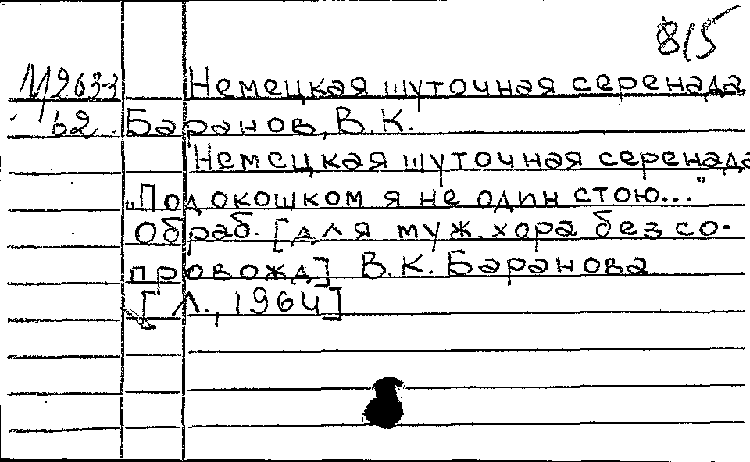 815
М263-3 Немецкая шуточная серенада
Б2. Баранов, В. К.
Немецкая шуточная серенада
„Под окошком я не один стою..."
Обраб. [для муж. хора без со-
провожд] В. К. Баранова
[Л., 1964]